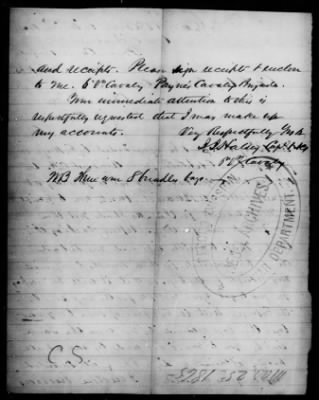 and receipts. Please sign receipts & enclose
to me. 6" Va Cavalry Payne's Cavalry Brigade.
Your immediate attention to this is
respectfully requested that I may make up
my accounts. Very Respectfully Yours
Capt &
Va Cavalry
NB There were 8 bundles
ARCHIVES
DEPARTMENT
C.S.